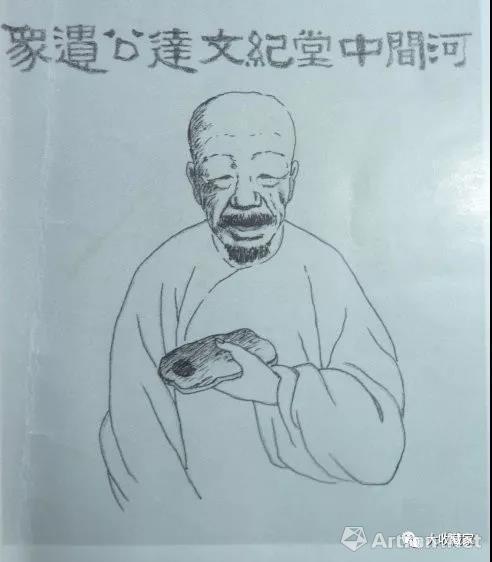 河間中堂紀文達公遺象
大收藏家